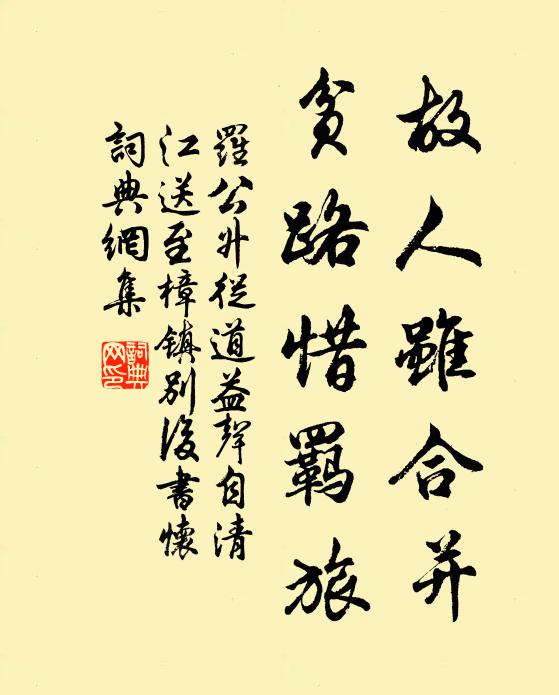 故人雖合并
貧路惜羈旅
羅公外從道益聲自清
江送至樟鎮別後書懷
詞典網集
詞典網印